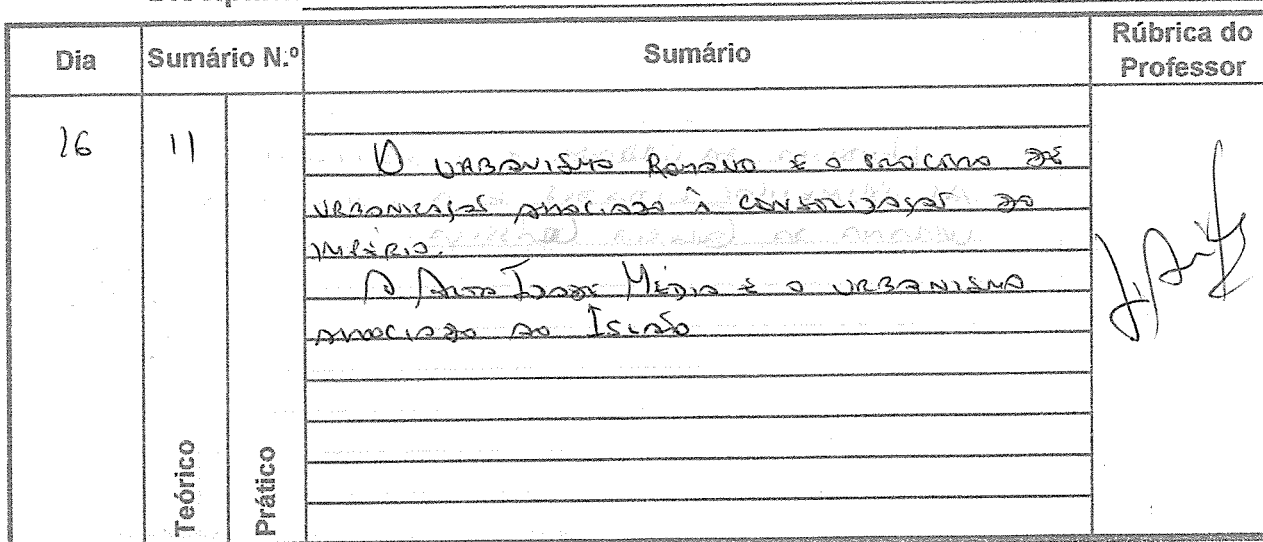 Dia
Sumário N.º
Sumário
Rúbrica do
Professor
16
11
O URBANISMO ROMANO E O PROCESSO DE
URBANIZAÇÃO ASSOCIADO À CONSOLIDAÇÃO DO
IMPÉRIO.
A ALTA IDADE MÉDIA E O URBANISMO
ASSOCIADO AO ISLÃO
Teórico
Prático